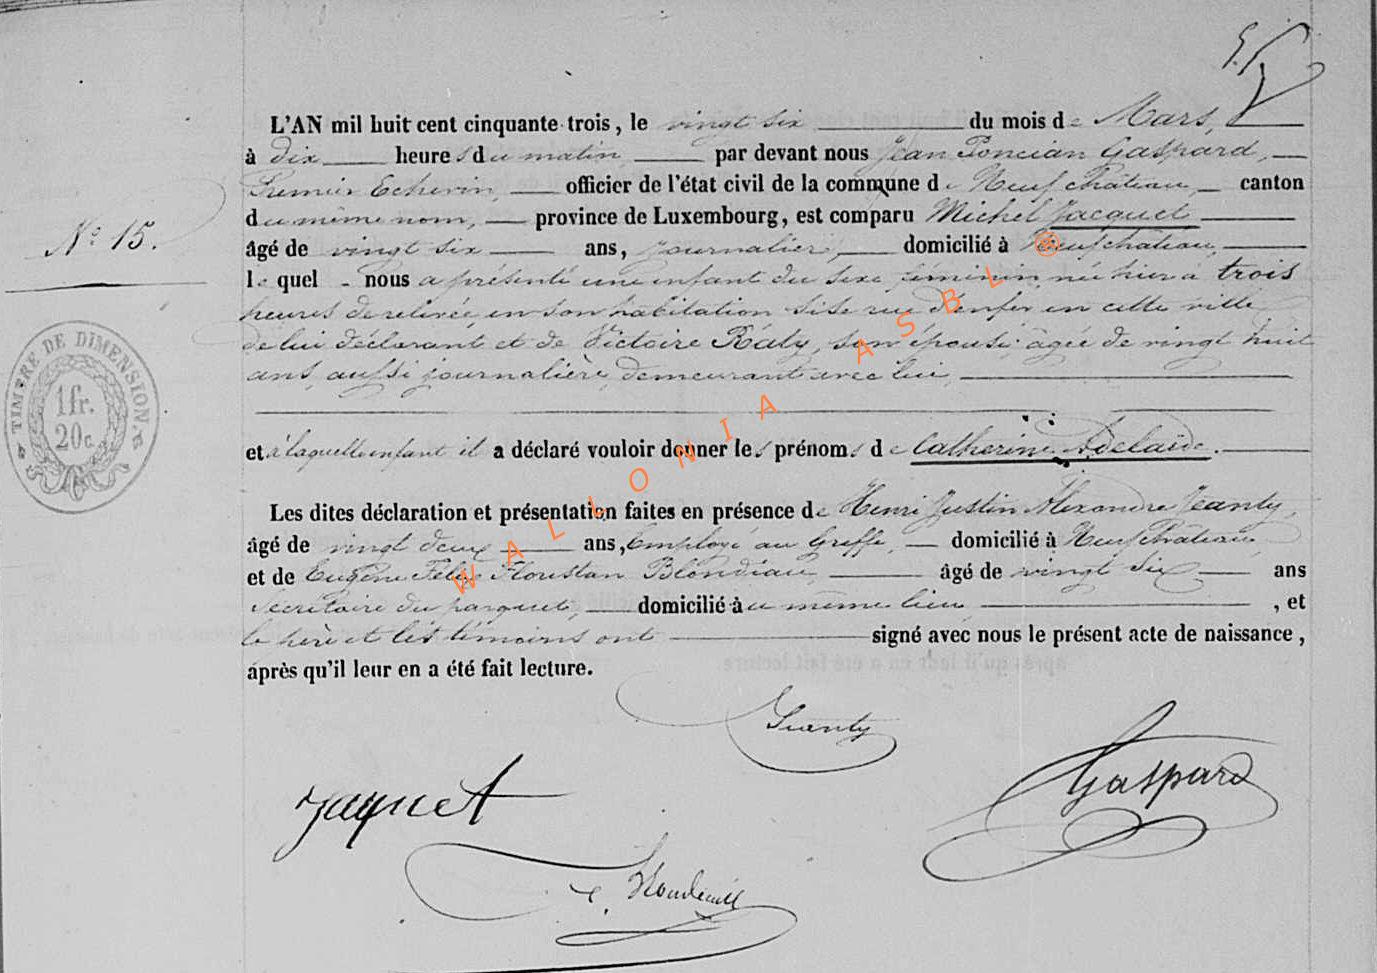 L'AN mil huit cent cinquante trois, le vingt six du mois de Mars,
à dix heures du matin par devant nous Jean Poncian Gaspard,
Premier Echevin, officier de l'état civil de la commune de Neufchâteau canton
du même nom, province de Luxembourg, est comparu Michel Jacquet
N° 15.
âgé de vingt six ans, journalier, domicilié à Neufchâteau,
lequel nous a présenté une enfant du sexe féminin, née hier à trois
heures de relevée, en son habitation sise rue d'enfer en cette ville
de lui déclarant et de Victoire Râty, son épouse, âgée de vingt huit
ans, aussi journalière, demeurant avec lui,
TIMBRE DE DIMENSION.
1 fr.
20 c.
et à laquelle enfant il a déclaré vouloir donner les prénoms de Catherine Adelaïde.
Les dites déclaration et présentation faites en présence de Henri Justin Alexandre Jeanty,
âgé de vingt deux ans, Employé au Greffe, domicilié à Neufchâteau
et de Eugène Félix Floristan Blondiau, âgé de vingt six ans
Secrétaire du parquet, domicilié au même lieu , et
le père et les témoins ont signé avec nous le présent acte de naissance,
après qu'il leur en a été fait lecture.
Jeanty
Jaquet
Gaspard
WALLONIA ASBL ®